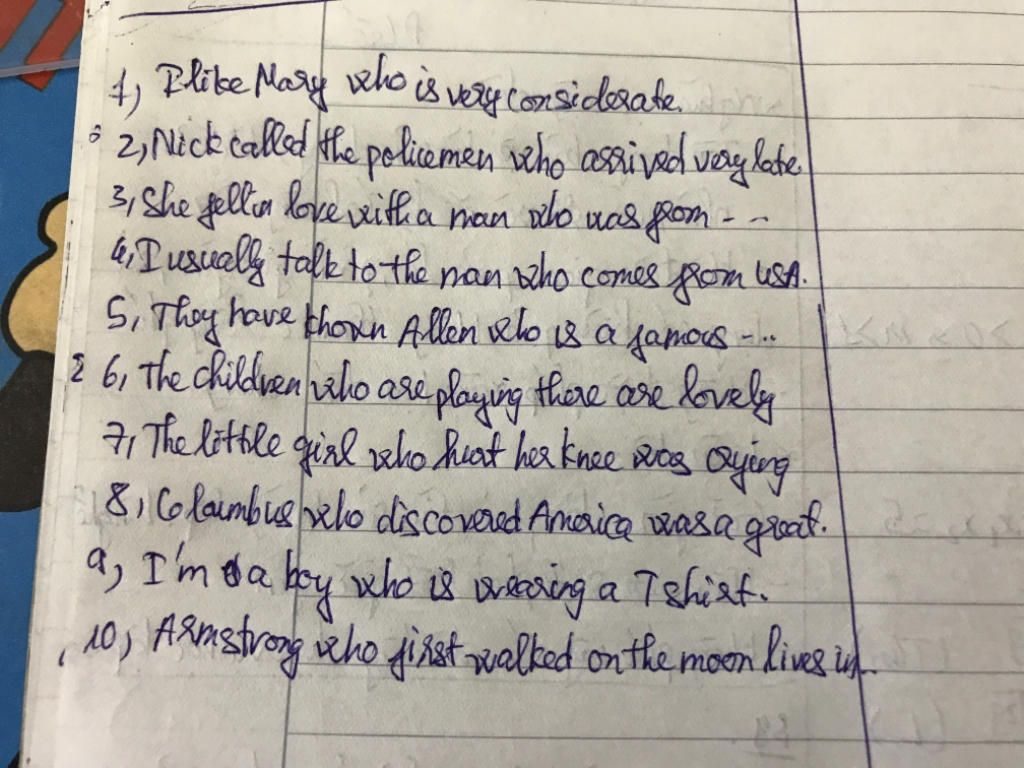 1, I like Mary who is very considerate.
2, Nick called the policemen who arrived very late
3, She fell in love with a man who was from - ..
4, I usually talk to the man who comes from USA.
5, They have known Allen who is a famous - ..
6, The children who are playing there are lovely
7, The little girl who hurt her knee was crying
8, Columbus who discovered America was a great.
9, I'm a boy who is wearing a T shirt.
10, Armstrong who first walked on the moon lives in..